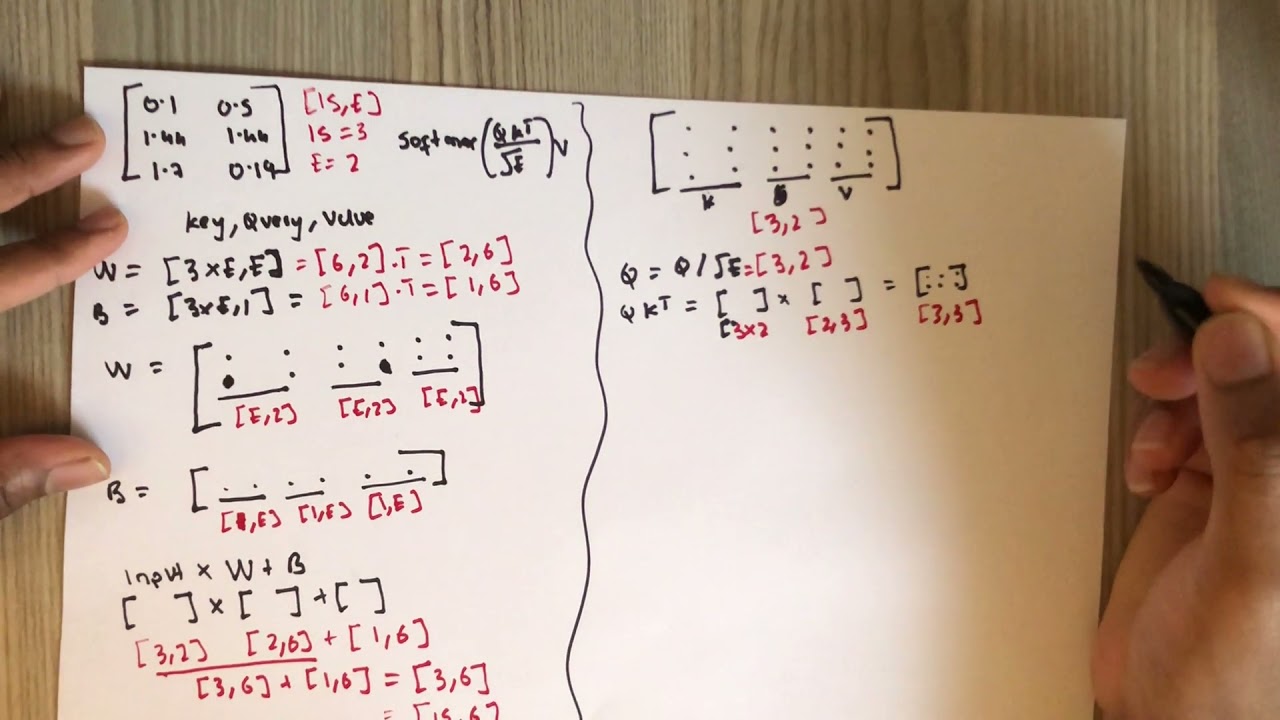 [0.1 0.5] [IS,E]
[1.44 1.44] IS = 3
[1.7 0.19] E = 2
Softmax (QKᵀ/√E) V
Key, Query, Value
W = [3×E,E] = [6,2].T = [2,6]
B = [3×E,1] = [6,1].T = [1,6]
W = [ ]
[E,2] [E,2] [E,2]
B = [ ]
[1,E] [1,E] [1,E]
Input × W + B
[ ] × [ ] + [ ]
[3,2] [2,6] + [1,6]
[3,6] + [1,6] = [3,6]
= [IS,6]
K V
[3,2]
Q = Q/√E = [3,2]
QKᵀ = [ ] × [ ] = [ ]
[3×2 [2,3] [3,3]